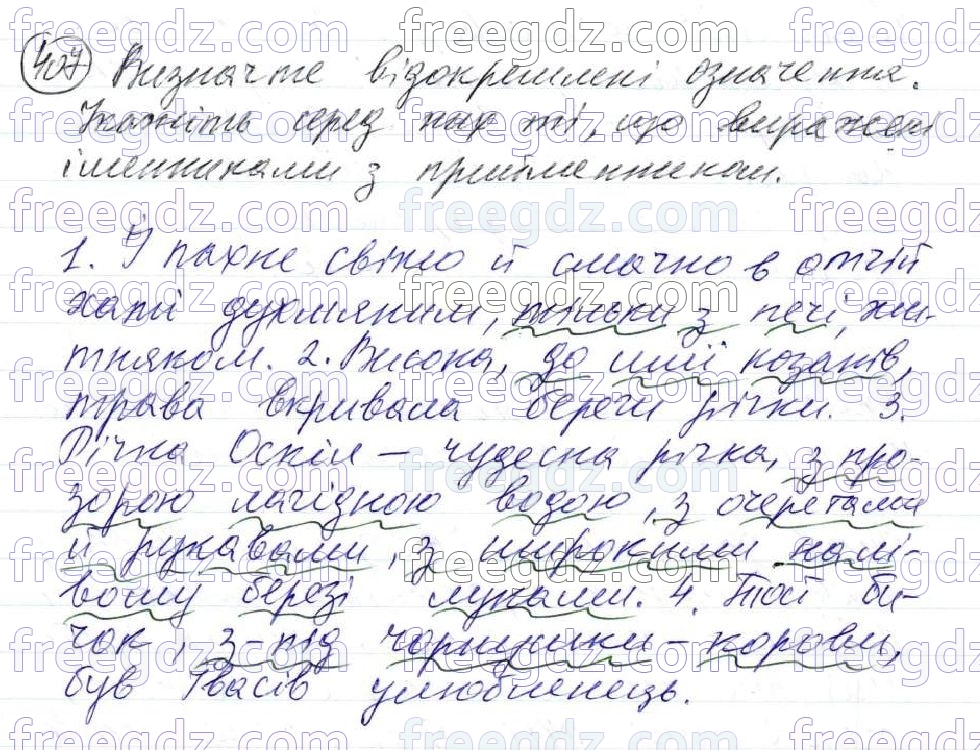 407 Визначте відокремлені означення.
Укажіть серед них ті, що виражені
іменниками з прийменниками.
1. Й пахне свіжо й смачно в отчій
хаті духмяним, тільки з печі, жи-
тняком. 2. Висока, до шиї козаків,
трава вкривала береги річки. 3.
Річка Оскіл – чудесна річка, з про-
зорою лагідною водою, з очеретами
й рукавами, з широкими на лі-
вому березі луками. 4. Той би-
чок, з-під чорнушки-корови,
був Івасів улюбленець.
freegdz.com